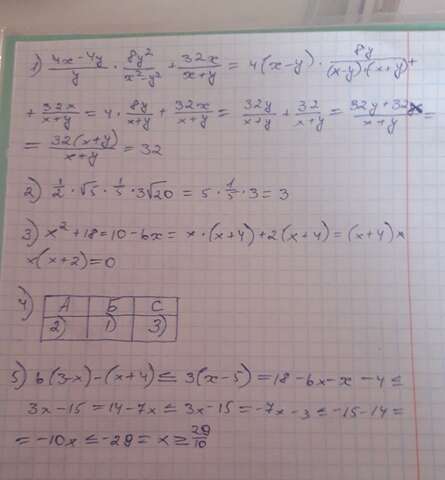 1) (4x-4y)/y · 8y²/(x²-y²) + 32x/(x+y) = 4(x-y) · 8y/((x-y)·(x+y)) +
+ 32x/(x+y) = 4 · 8y/(x+y) + 32x/(x+y) = 32y/(x+y) + 32/(x+y) = (32y+32x)/(x+y) =
= 32(x+y)/(x+y) = 32
2) 1/2 · √5 · 1/5 · 3√20 = 5 · 1/5 · 3 = 3
3) x²+18=10-6x= x·(x+4)+2(x+4)=(x+4)×
x(x+2)=0
4) А Б С
2) 1) 3)
5) 6(3-x)-(x+4) ≤ 3(x-5) = 18-6x-x-4 ≤
3x-15 = 14-7x ≤ 3x-15 = -7x-3 ≤ -15-14 =
= -10x ≤ -29 = x ≥ 29/10